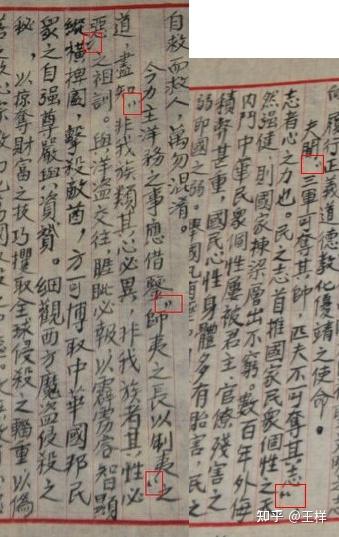 向履行正義道德教化優靖之使命。
夫聞：三軍可奪其帥，匹夫不可奪其志“
志者心之力也。民之志首推國家民衆個性之
然强健，則國家棟梁層出不窮。数百年外侮
内鬥中華民衆個性屢被君主官僚残害之
積弊甚重，國民心性身體多有胎害，民之
弱即國之弱。
自救而救人，萬勿混淆。
今办主洋務之事應借鑒“師夷之長以制夷之“
道 盡知“非我族類其心必異，非我族者其性必
惡“之祖訓。與洋盗交往睚眦必報以霹雳睿智顯
縱橫捭闔，擊殺敵酋，方可博取中華國邦民
衆之自强尊嚴與資質。細觀西方魔盗侵殺之
秘，以掠奪財富之技巧攫取全球侵殺之輜重以偽
知乎 @王样